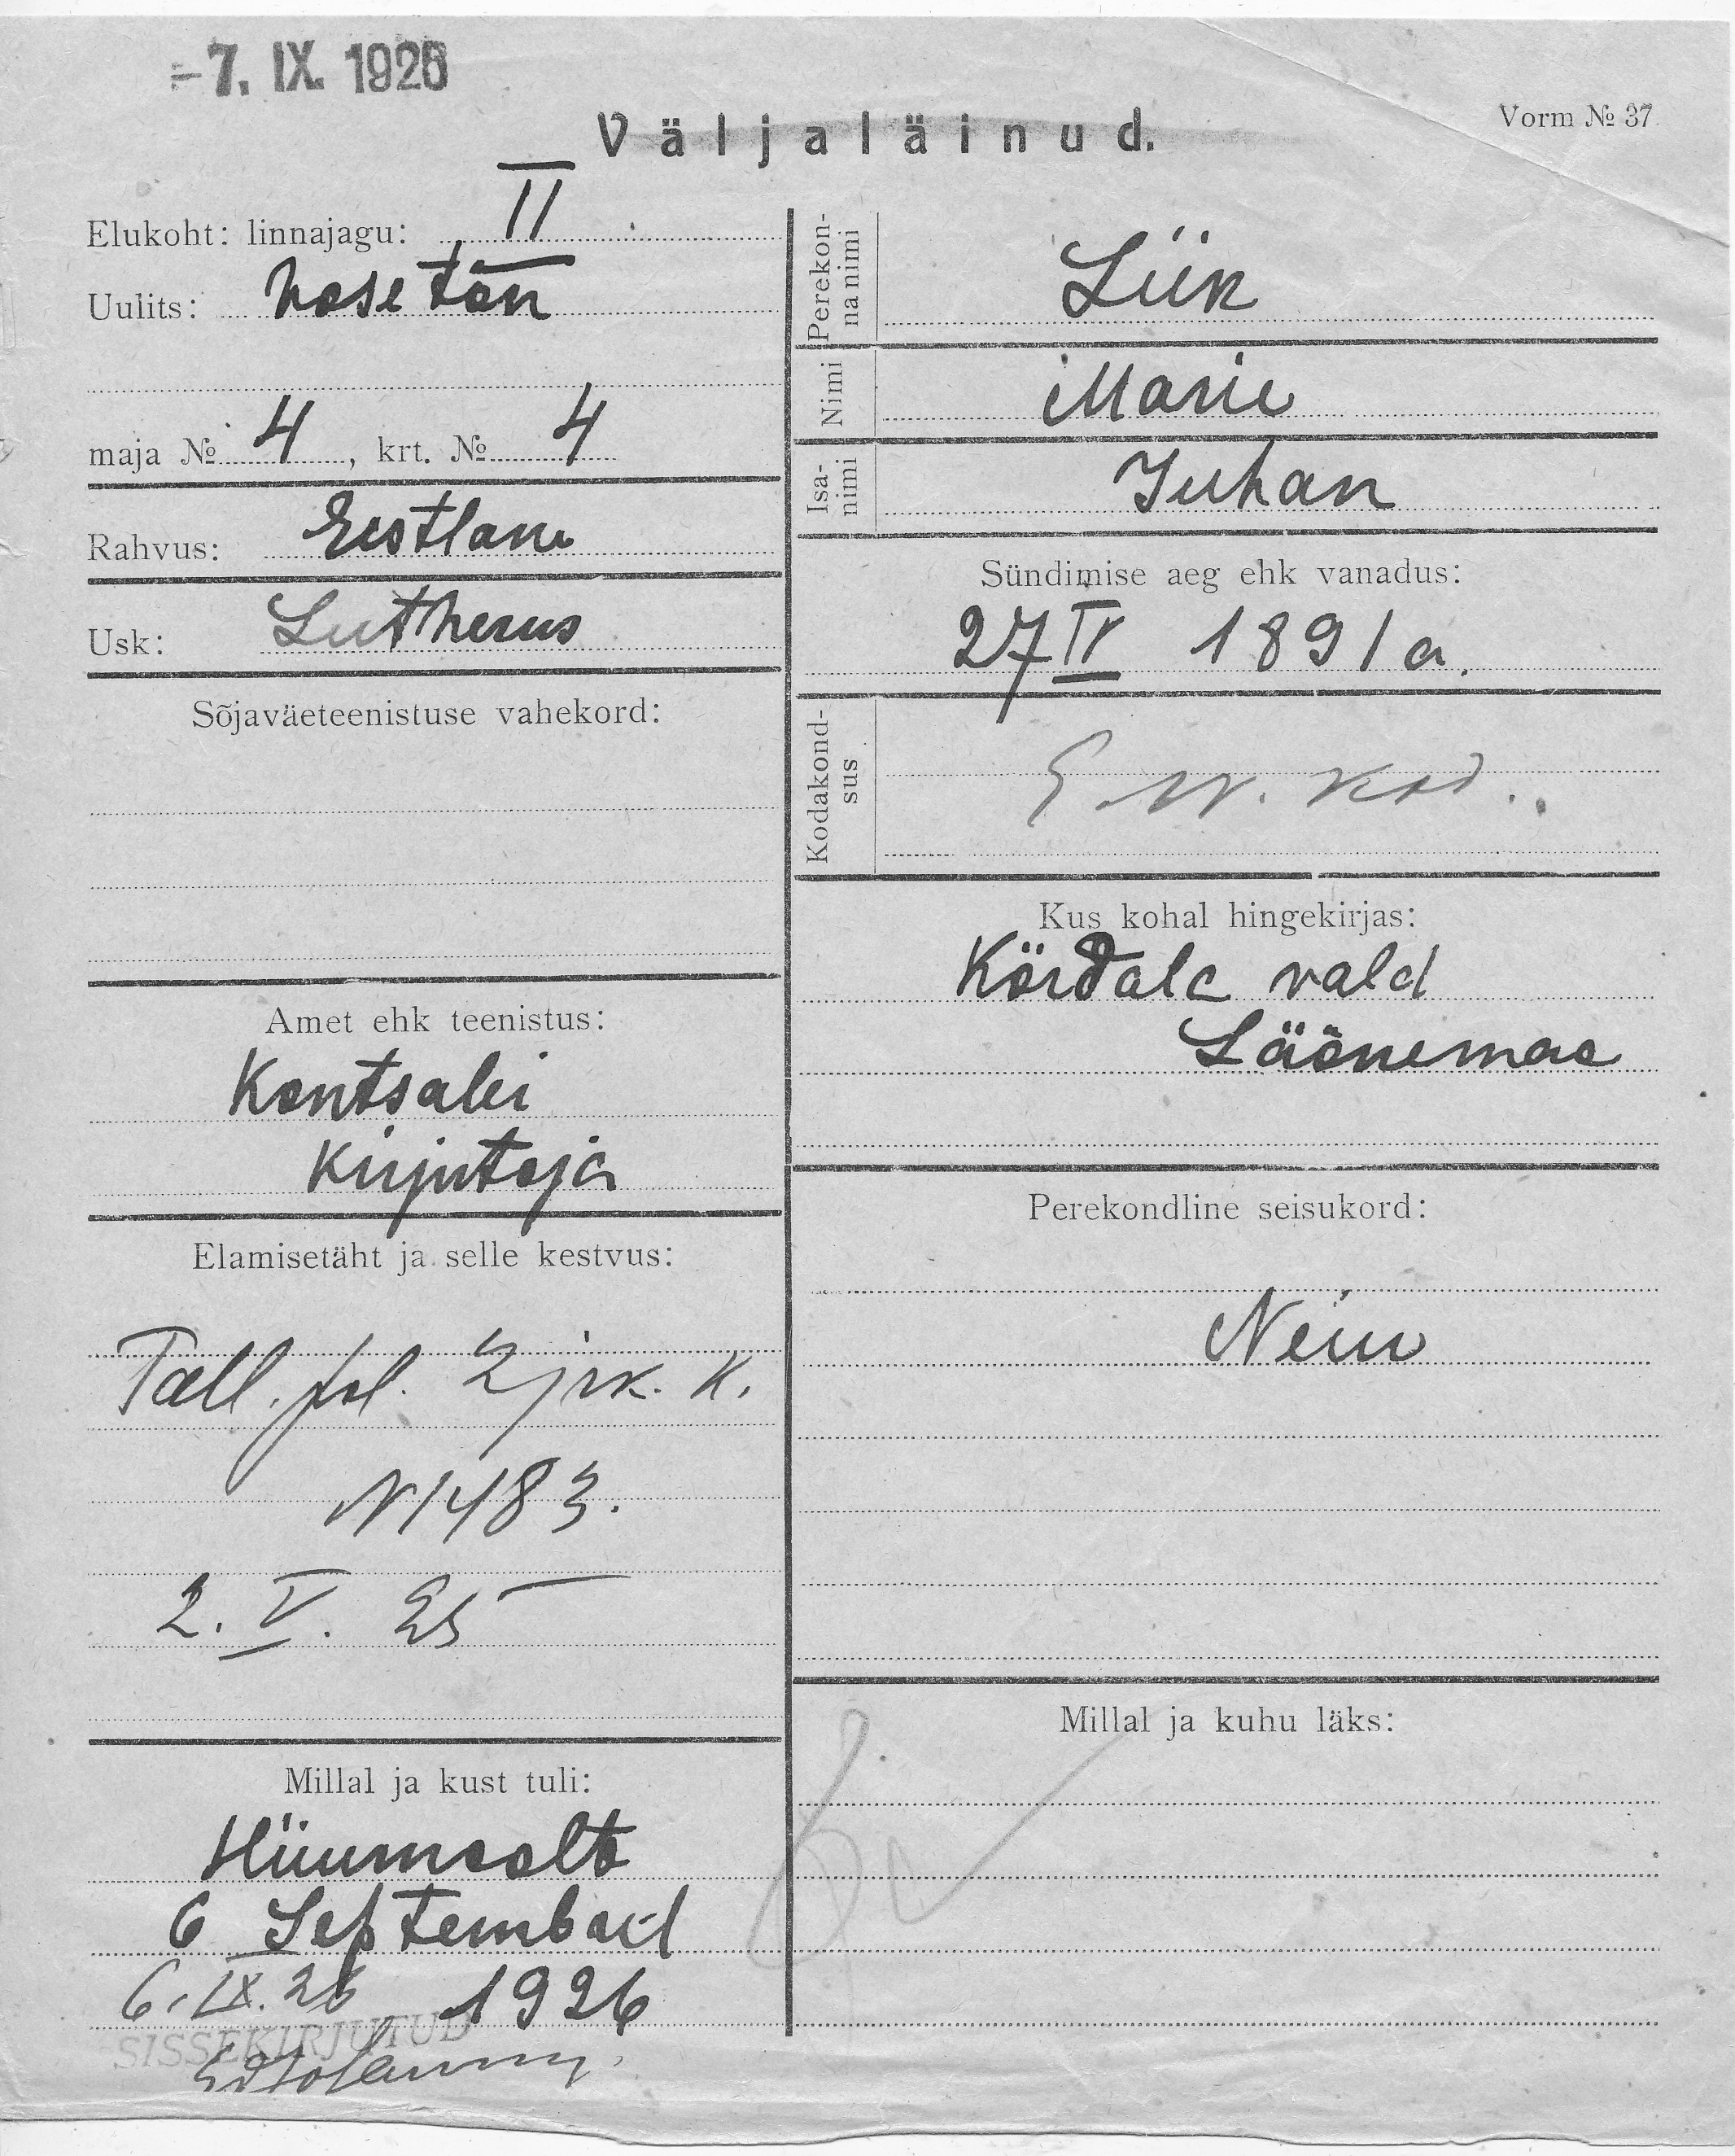 -7. IX. 1926
Väljaläinud.
Vorm № 37
Elukoht: linnajagu: II
Uulits: Kose tän
maja № 4, krt. № 4
Rahvus: Eestlane
Usk: Lutherus
Sõjaväeteenistuse vahekord:
Amet ehk teenistus:
Kantselei
Kirjutaja
Elamisetäht ja selle kestvus:
Tall. pol. 2 jrk. K.
N 1483.
2. V. 25
Millal ja kust tuli:
Hiiumaalt
6 Septembril
6. IX. 26 1926
SISSEKIRJUTUD
Perekon-
na nimi
Liik
Nimi
Marie
Isa-
nimi
Juhan
Sündimise aeg ehk vanadus:
27 IV 1891 a.
Kodakond-
sus
E. W. Kod.
Kus kohal hingekirjas:
Kärdala vald
Läänemaa
Perekondline seisukord:
Neiu
Millal ja kuhu läks: